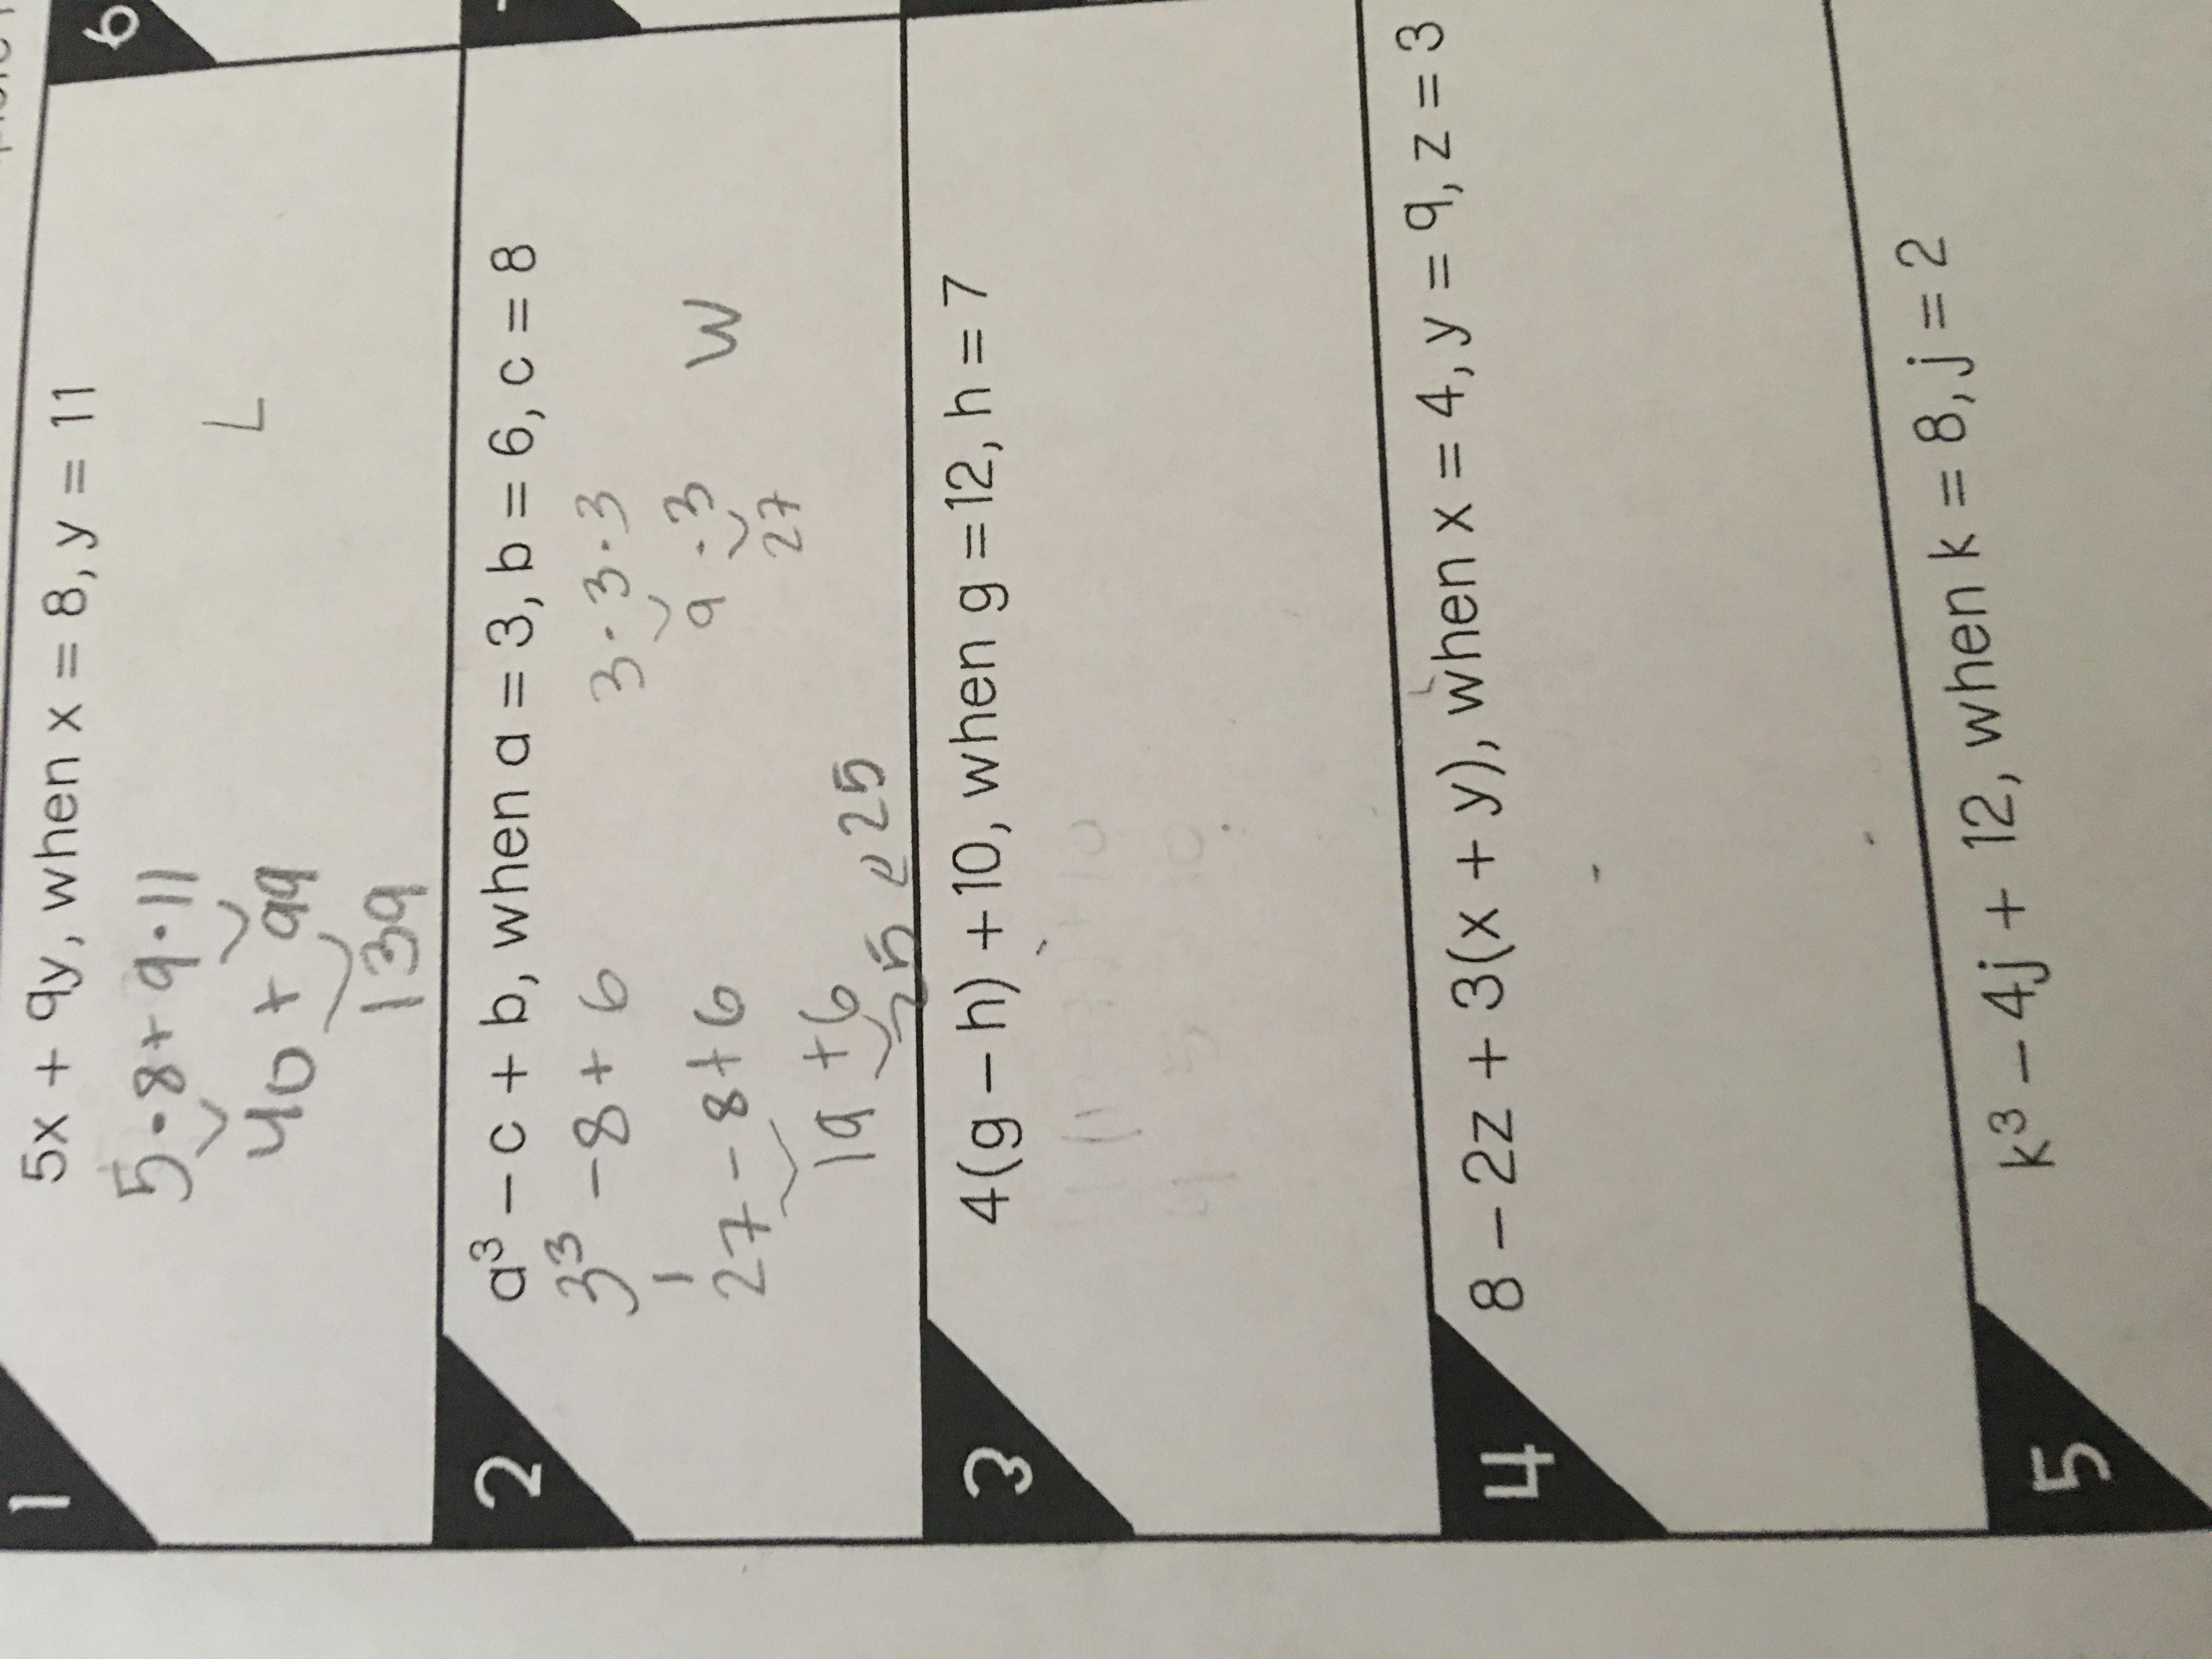 1
5x + 9y, when x = 8, y = 11
5·8+9·11
40 + 99
139
L
2
a³ – c + b, when a = 3, b = 6, c = 8
3³ -8+6
3·3·3
9·3
27
27-8+6
19+6
25
25
W
3
4(g – h) + 10, when g = 12, h = 7
4
8 – 2z + 3(x + y), when x = 4, y = 9, z = 3
5
k³ – 4j + 12, when k = 8, j = 2
6